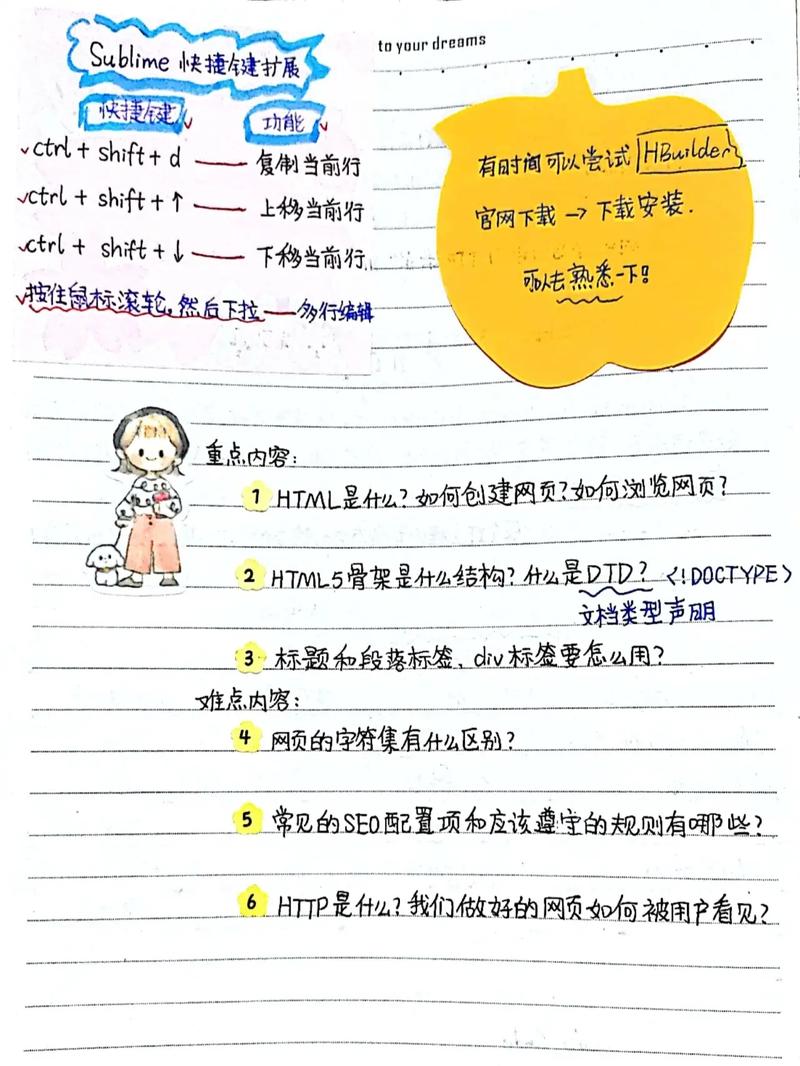 Sublime 快捷键扩展
快捷键 功能
ctrl + shift + d —— 复制当前行
ctrl + shift + ↑ —— 上移当前行
ctrl + shift + ↓ —— 下移当前行
按住鼠标滚轮,然后下拉 —— 多行编辑
to your dreams
有时间可以尝试 HBuilder
官网下载 → 下载安装.
可以去熟悉一下!
重点内容:
1 HTML是什么?如何创建网页?如何浏览网页?
2 HTML5骨架是什么结构?什么是DTD? <!DOCTYPE>
文档类型声明
3 标题和段落标签、div标签要怎么用?
难点内容:
4 网页的字符集有什么区别?
5 常见的SEO配置项和应该遵守的规则有哪些?
6 HTTP是什么?我们做好的网页如何被用户看见?